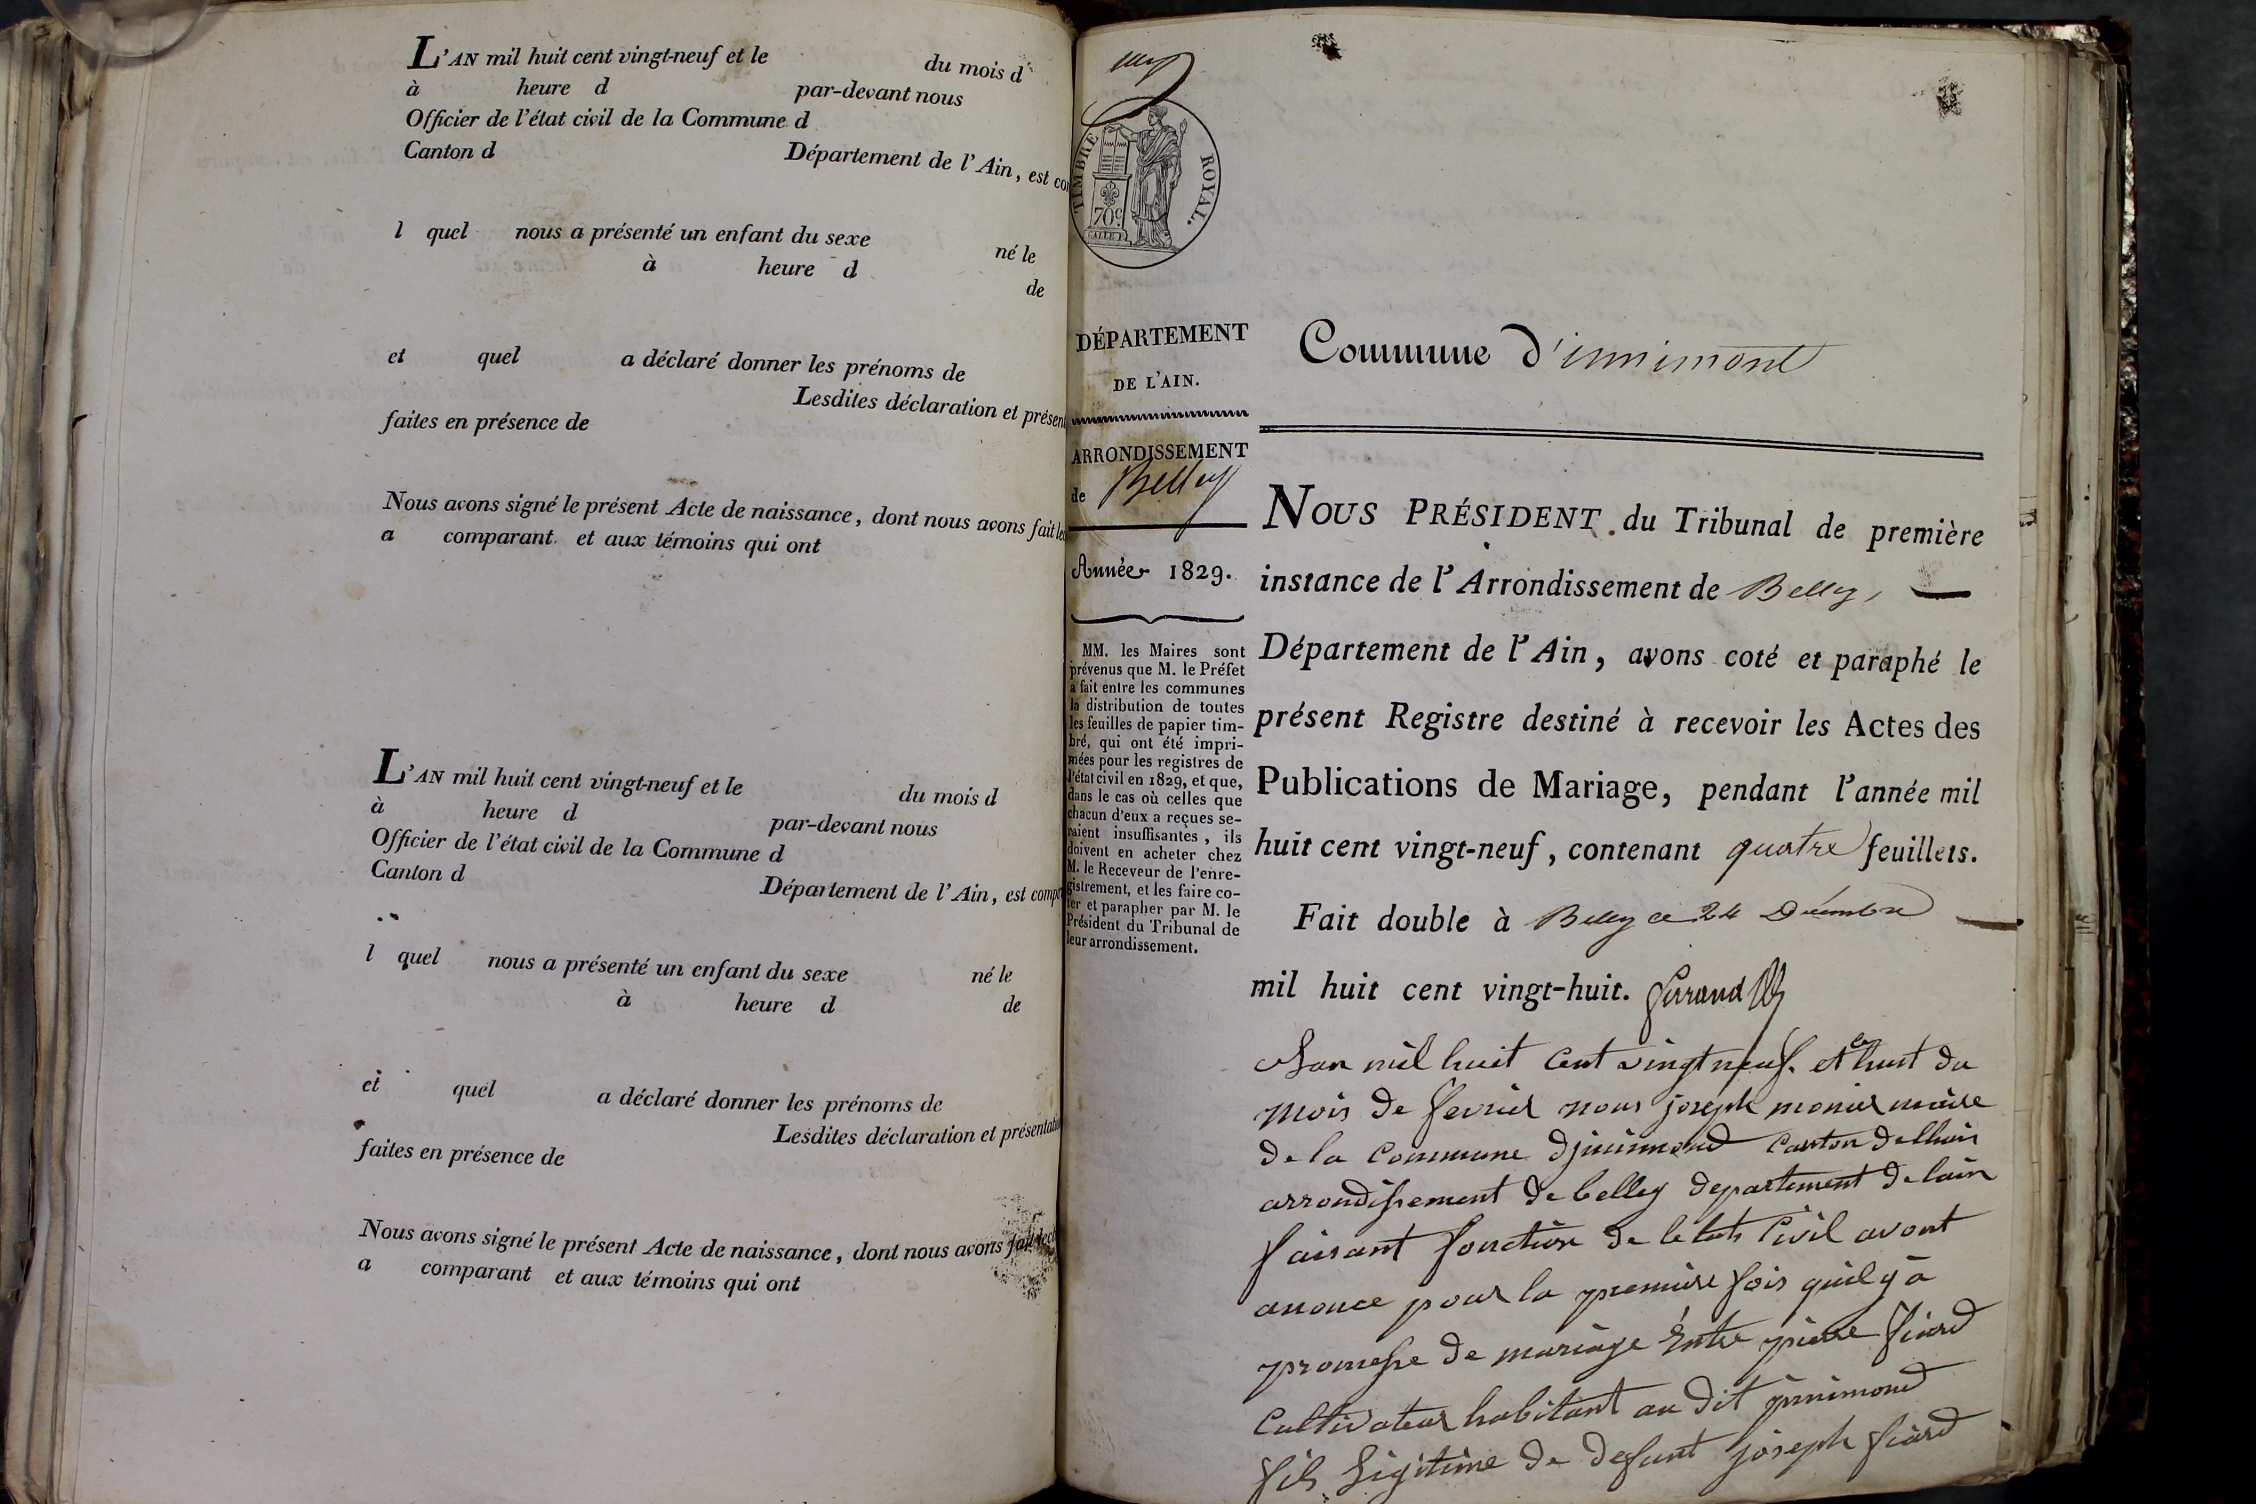 L'AN mil huit cent vingt-neuf et le du mois d
à heure d par-devant nous
Officier de l'état civil de la Commune d
Canton d Département de l'Ain, est
l quel nous a présenté un enfant du sexe né le
à heure d de
et quel a déclaré donner les prénoms de
Lesdites déclaration et
faites en présence de
Nous avons signé le présent Acte de naissance, dont nous avons fait
a comparant et aux témoins qui ont
L'AN mil huit cent vingt-neuf et le du mois d
à heure d par-devant nous
Officier de l'état civil de la Commune d
Canton d Département de l'Ain, est
l quel nous a présenté un enfant du sexe né le
à heure d de
et quel a déclaré donner les prénoms de
Lesdites déclaration et
faites en présence de
Nous avons signé le présent Acte de naissance, dont nous avons
a comparant et aux témoins qui ont
TIMBRE ROYAL.
70c
DÉPARTEMENT
DE L'AIN.
ARRONDISSEMENT
de Belley
Année 1829.
MM. les Maires sont
prévenus que M. le Préfet
a fait entre les communes
la distribution de toutes
les feuilles de papier tim-
bré, qui ont été impri-
mées pour les registres de
l'état civil en 1829, et que,
dans le cas où celles que
chacun d'eux a reçues se-
raient insuffisantes, ils
doivent en acheter chez
M. le Receveur de l'enre-
gistrement, et les faire co-
ter et parapher par M. le
Président du Tribunal de
leur arrondissement.
Commune d'innimont
NOUS PRÉSIDENT du Tribunal de première
instance de l'Arrondissement de Belley,
Département de l'Ain, avons coté et paraphé le
présent Registre destiné à recevoir les Actes des
Publications de Mariage, pendant l'année mil
huit cent vingt-neuf, contenant quatre feuillets.
Fait double à Belley ce 24 Décembre
mil huit cent vingt-huit.
Lan mil huit Cent vingt neuf. et le huit du
mois de fevrier nous joseph monier maire
de la Commune Djnnimond Canton de lhuis
arrondissement de belley departement de lain
faisant fonction de letat Civil avont
anonce pour la premiere fois quil y à
promesse de mariage Entre pierre fiard
Cultivateur habitant au dit jnnimond
fils Légitime de defunt joseph fiard